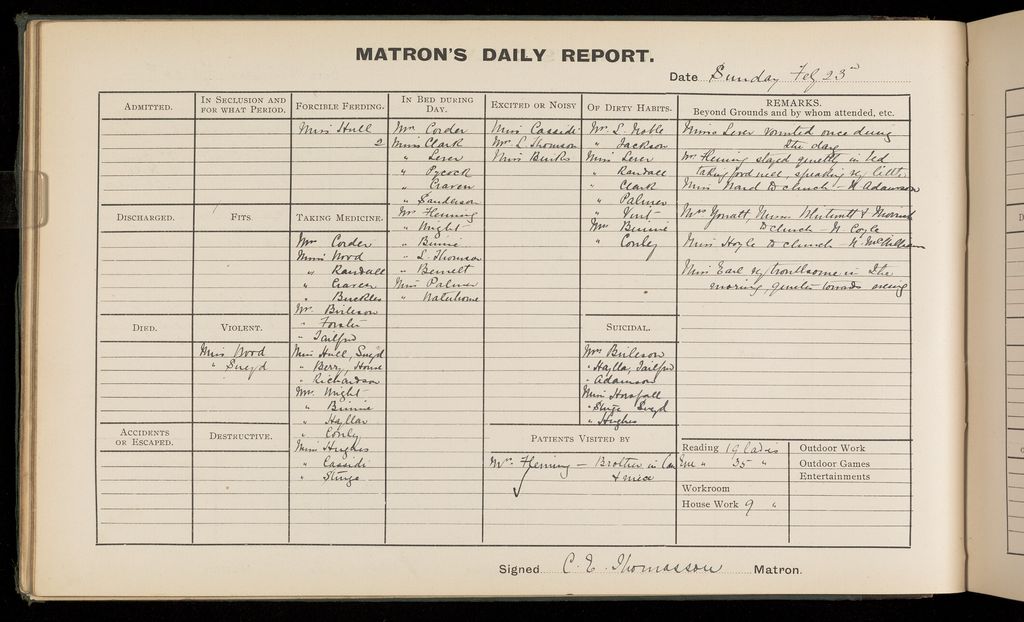 MATRON'S DAILY REPORT.
Date Sunday Feb 23rd
ADMITTED.
IN SECLUSION AND FOR WHAT PERIOD.
FORCIBLE FEEDING.
Miss Hull
2
IN BED DURING DAY.
Mrs Corder
Miss Clark
" Lever
" Pycock
" Craven
" Sanderson
Mrs Fleming
" Wright
" Binnie
" L. Thomson
" Bennett
Miss Palmer
" Waterhouse
EXCITED OR NOISY
Miss Cassidi
Mrs L. Thomson
Miss Binks
OF DIRTY HABITS.
Mrs L. Noble
" Jackson
Miss Lever
" Randall
" Clark
" Palmer
" Vint
Mrs Binnie
" Conley
REMARKS.
Beyond Grounds and by whom attended, etc.
Miss Lever vomited once during
the day
Mrs Fleming stayed quietly in bed
taking food well, speaking very little
Miss Ward to church - N. Adamson
Mrs
to church - N. Coyle
Miss Hoyle to church - N. McWilliam
Miss Earl very troublesome in the
morning, quieter towards evening
DISCHARGED.
FITS
TAKING MEDICINE.
Mrs Corder
Miss Wood
" Randall
" Craven
" Buckles
Mrs Birleson
" Forster
" Tailford
Miss Hull, Sneyd
" Berry, House
" Richardson
Mrs Wright
" Binnie
" Hyllar
" Conley
Miss Hughes
" Cassidi
" Sturge
DIED.
VIOLENT.
Miss Wood
" Sneyd
SUICIDAL.
Mrs Birleson
" Hyllar, Tailford
" Adamson
Miss Horsfall
" Sturge Sneyd
" Hughes
ACCIDENTS OR ESCAPED.
DESTRUCTIVE.
PATIENTS VISITED BY
Mrs Fleming - Brother in law
& niece
Reading 19 ladies
" 35 "
Workroom
House Work 9 "
Outdoor Work
Outdoor Games
Entertainments
Signed C. E. Thomasson Matron.